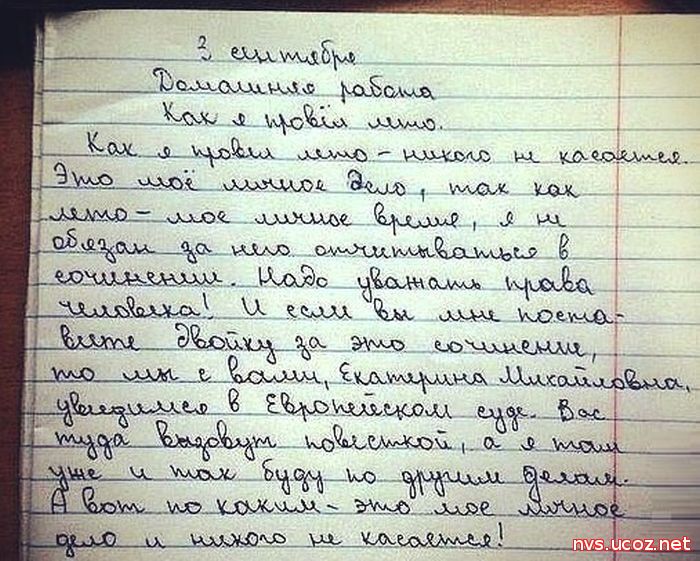 3 сентября
Домашняя работа
Как я провёл лето.
Как я провел лето - никого не касается.
Это моё личное дело, так как
лето - мое личное время, я не
обязан за него отчитываться в
сочинении. Надо уважать права
человека! И если вы мне поста-
вите двойку за это сочинение,
то мы с вами, Екатерина Михайловна,
увидимся в Европейском суде. Вас
туда вызовут повесткой, а я там
уже и так буду по другим делам.
А вот по каким - это мое личное
дело и никого не касается!
nvs.ucoz.net